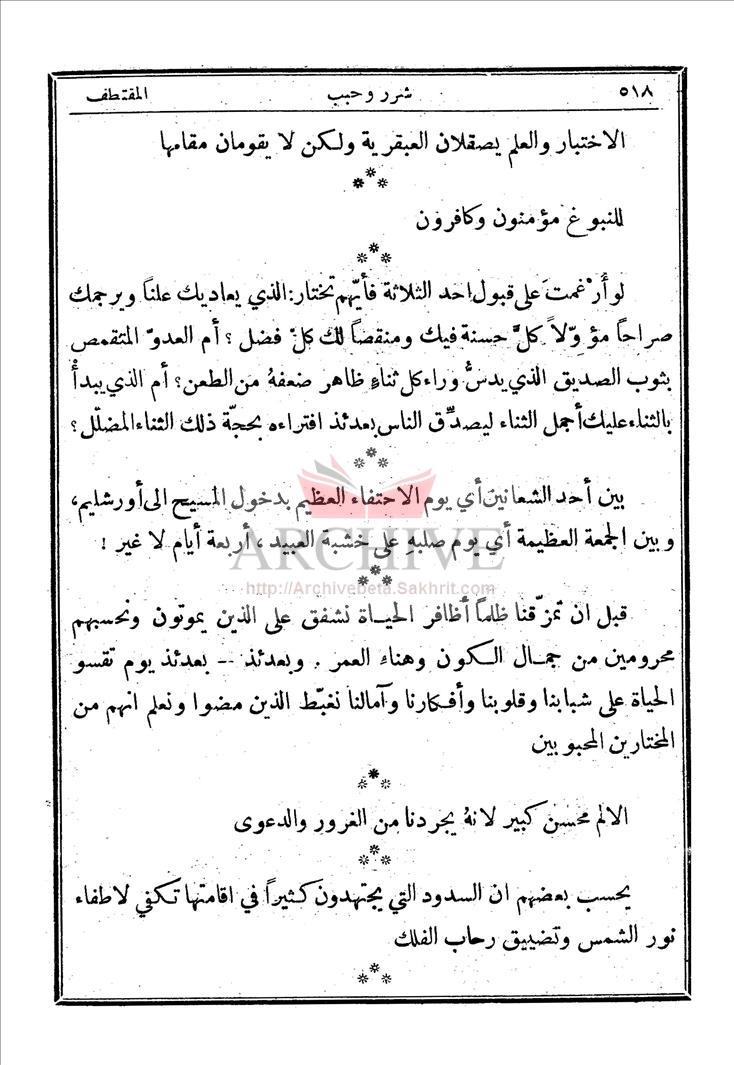 ٥١٨ شرر وحبب المقتطف
الاختبار والعلم يصقلان العبقرية ولكن لا يقومان مقامها
للنبوغ مؤمنون وكافرون
لو أُرْغمتَ على قبول احد الثلاثة فأيّهم تختار: الذي يعاديك علناً ويرجمك
صراحاً مؤوّلاً كلَّ حسنة فيك ومنقصاً لك كلّ فضل؟ أم العدوّ المتقمص
بثوب الصديق الذي يدسُّ وراء كل ثناءٍ ظاهر ضعفهُ من الطعن؟ أم الذي يبدأْ
بالثناء عليك أجمل الثناء ليصدِّق الناس بعدئذ افتراءه بحجّة ذلك الثناء المضلّل؟
بين أحد الشعانين أي يوم الاحتفاء العظيم بدخول المسيح الى أورشليم،
وبين الجمعة العظيمة أي يوم صلبهِ على خشبة العبيد، أربعة أيام لا غير!
ARCHIVE
http://Archivebeta.Sakhrit.com
قبل ان تمزّقنا ظلماً أظافر الحياة نشفق على الذين يموتون ونحسبهم
محرومين من جمال الكون وهناء العمر. وبعدئذ -- بعدئذ يوم تقسو
الحياة على شبابنا وقلوبنا وأفكارنا وآمالنا نغبّط الذين مضوا ونعلم انهم من
المختارين المحبوبين
الالم محسن كبير لانهُ يجردنا من الغرور والدعوى
يحسب بعضهم ان السدود التي يجتهدون كثيراً في اقامتها تكفي لاطفاء
نور الشمس وتضييق رحاب الفلك